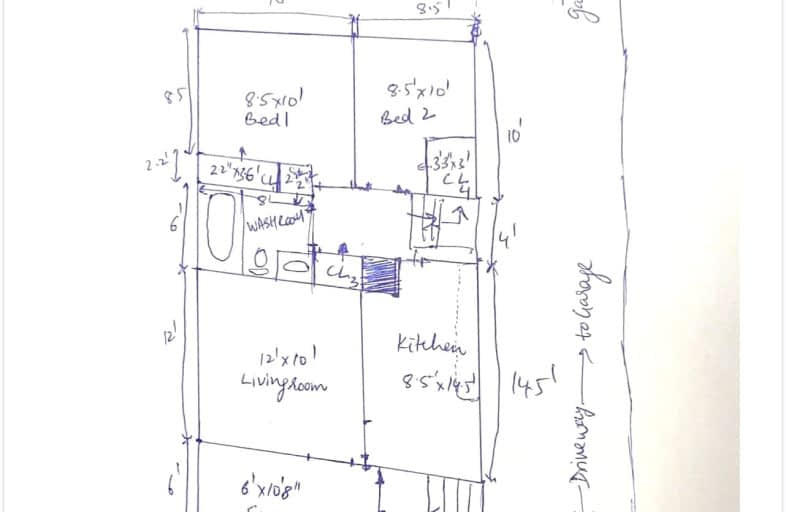 8.5'
85
8.5x10'
Bed 1
8.5'x10'
Bed 2
10'
2.2'
22"x36' CL
2'
3'3"x3'
CL
4
8'
6'
WASHROOM
4'
CL3
12'
12'x10'
Livingroom
Kitchen
8.5'x14.5'
14.5'
Driveway → to Garage
6'
6'x10'8"